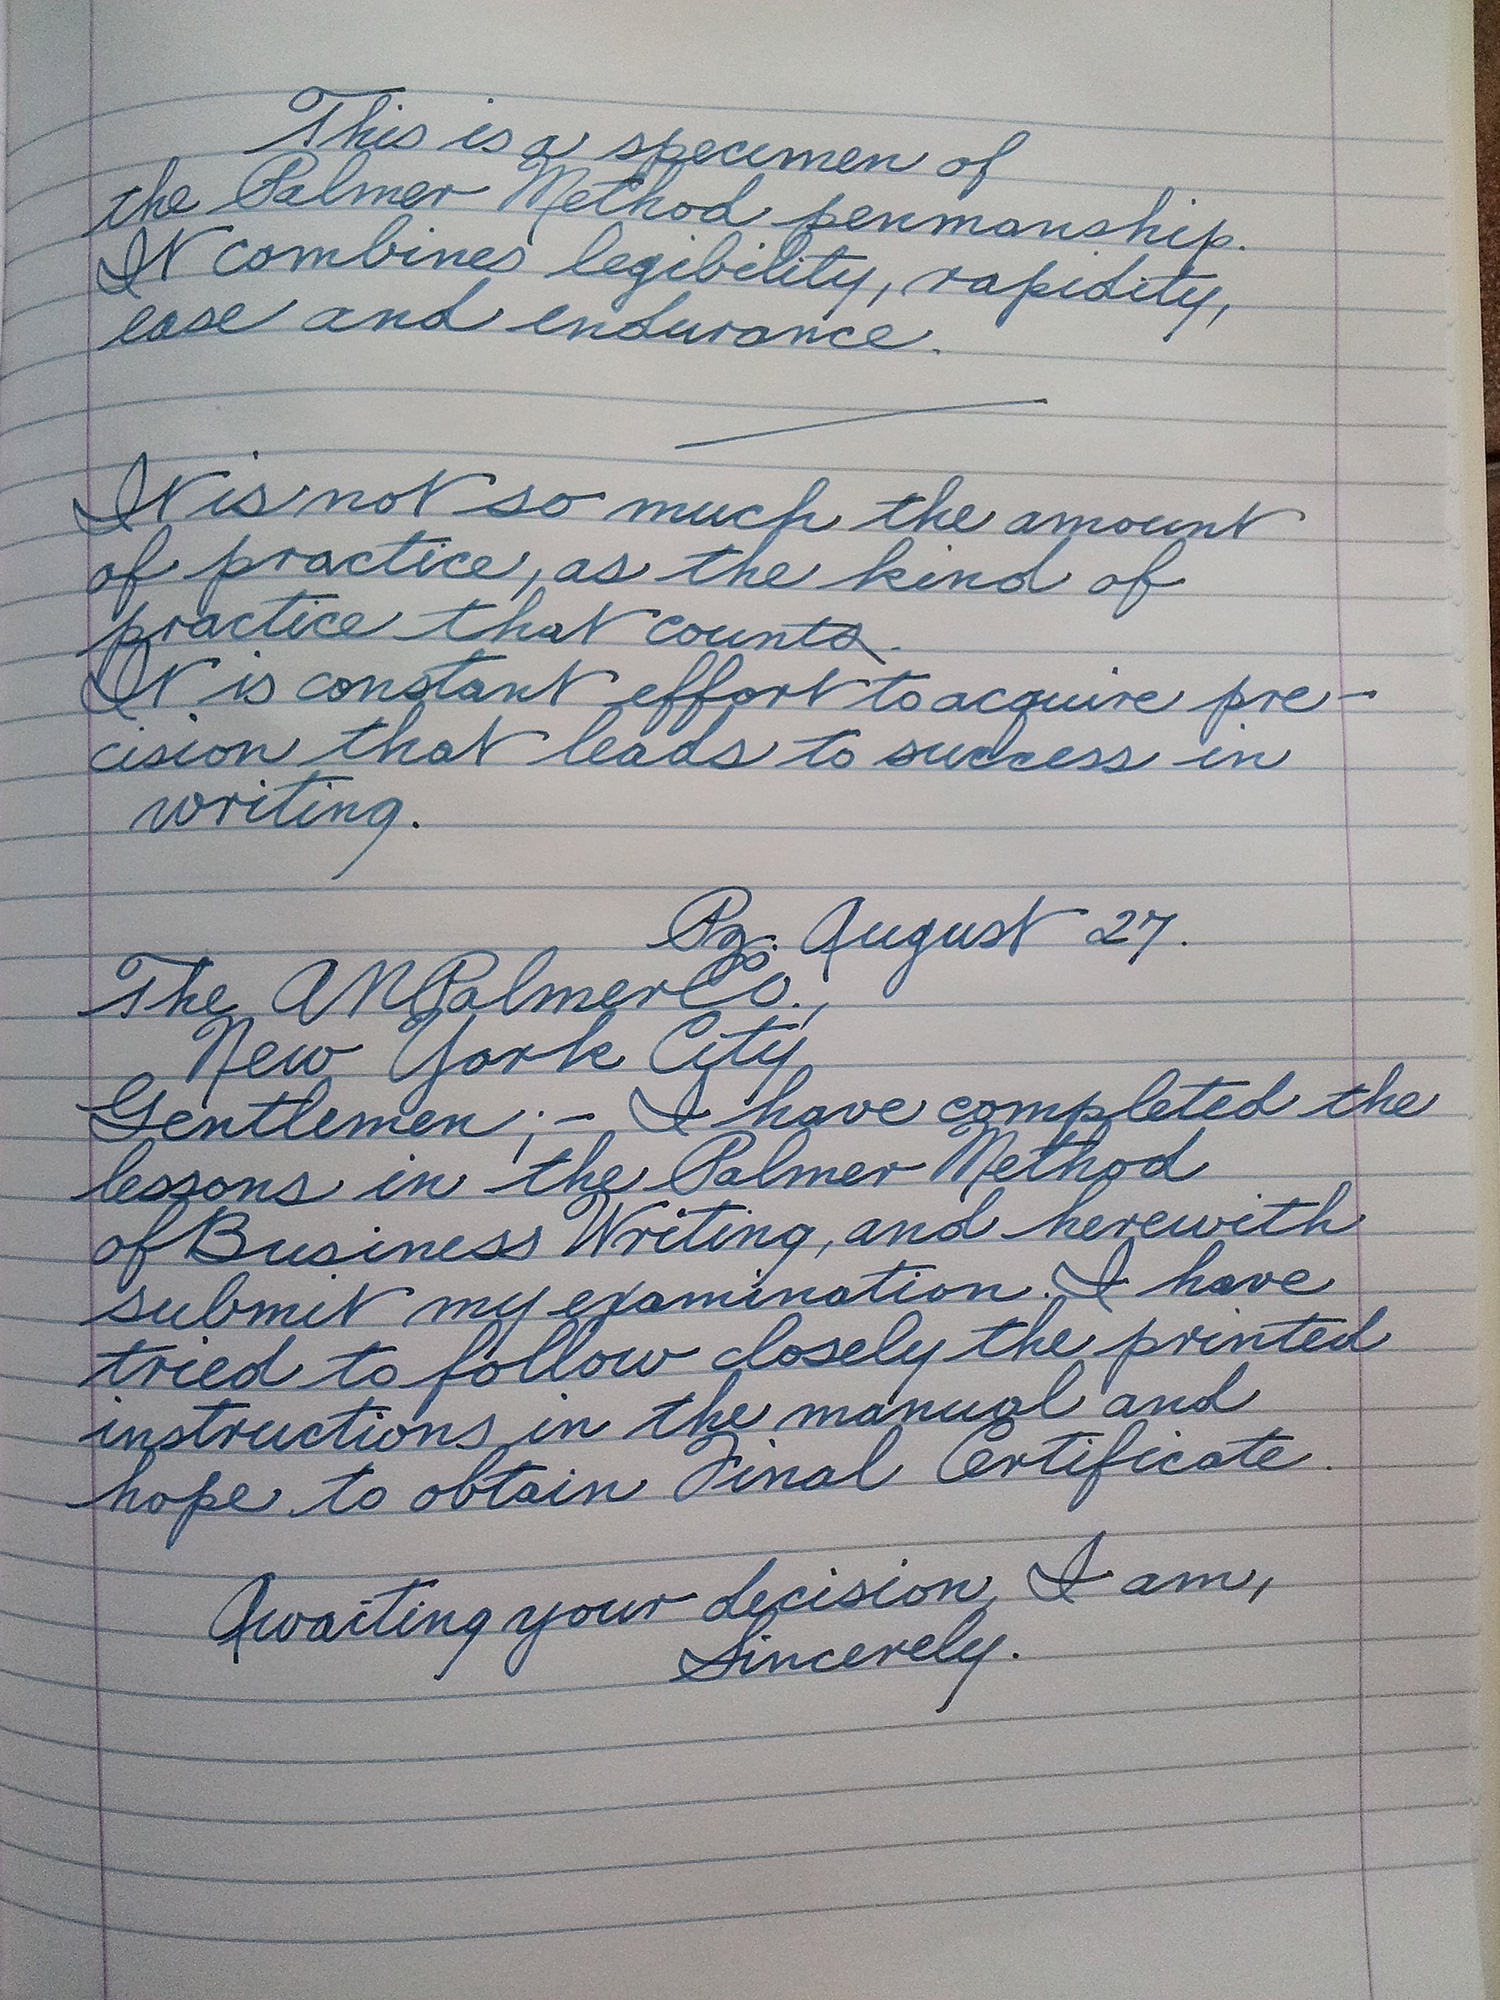 This is a specimen of
the Palmer Method penmanship.
It combines legibility, rapidity,
ease and endurance.
It is not so much the amount
of practice, as the kind of
practice that counts.
It is constant effort to acquire pre-
cision that leads to success in
writing.
Pz. August 27.
The A N Palmer Co.,
New York City
Gentlemen ;- I have completed the
lessons in the Palmer Method
of Business Writing, and herewith
submit my examination. I have
tried to follow closely the printed
instructions in the manual and
hope to obtain Final Certificate.
Awaiting your decision, I am,
Sincerely.